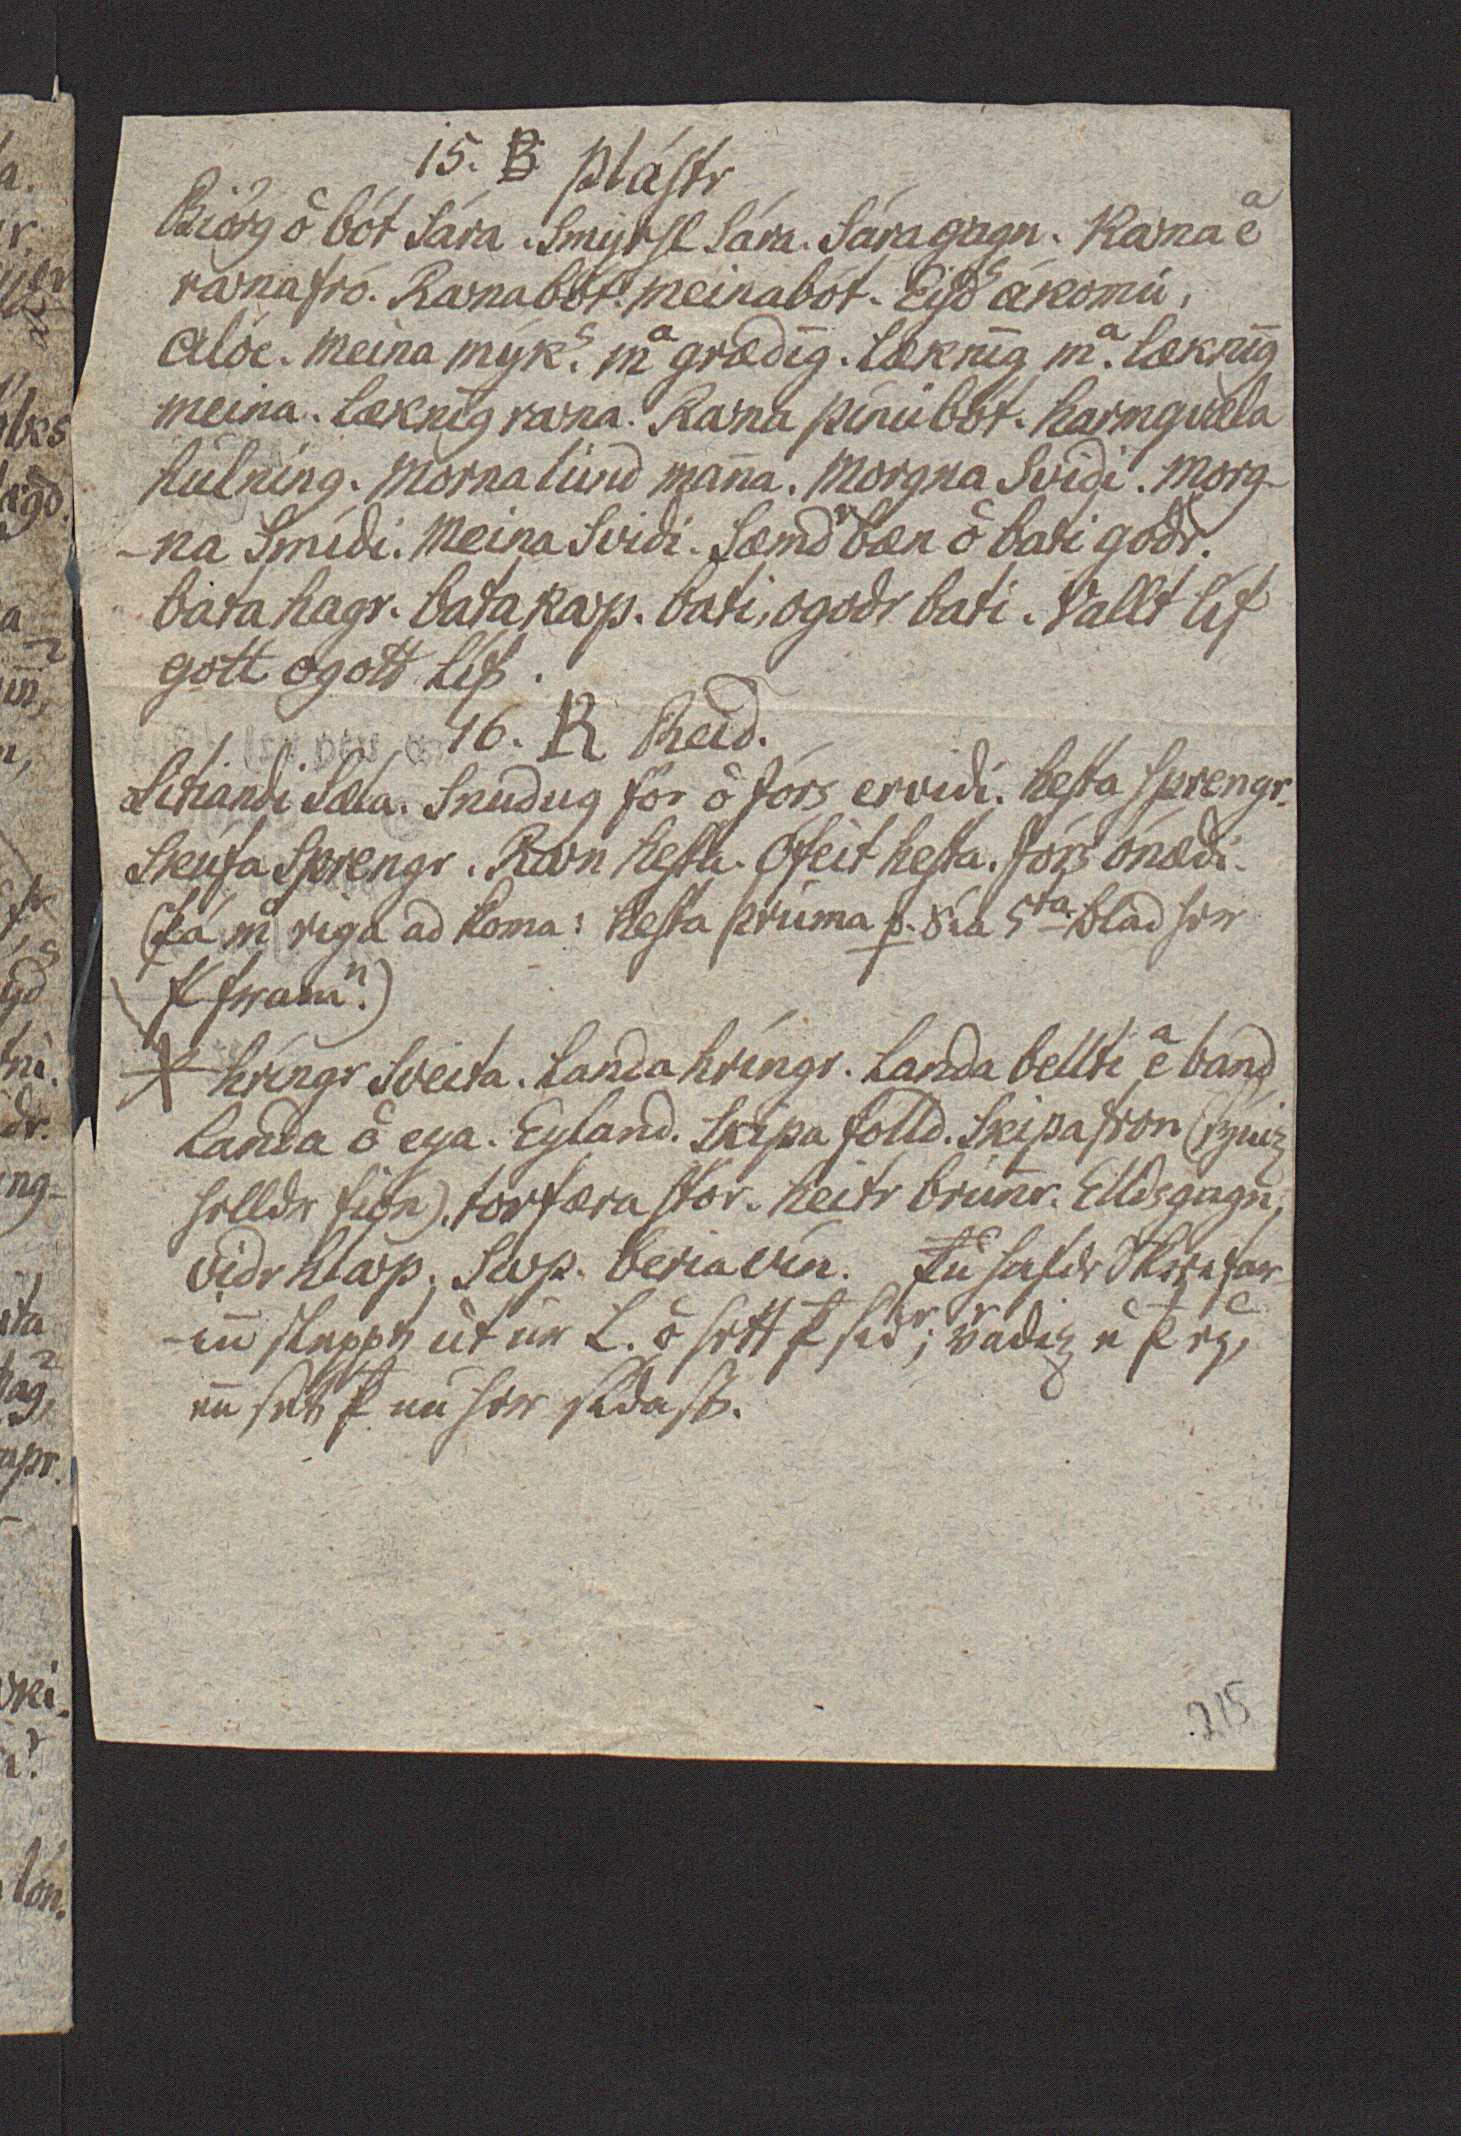 15. B plástr
Biörg ö bót Sára. Smyrsl Sára. Sáragagn. Kavna e
ravnafró. Ravnabót. meinabót. Eyd ákomu,
Alóe. meina mýk. m grædīg. Læknīg m. læknīg
meina. læknīg ravna. Ravna pinubót. harmqvæla
hulning. Morna lund man̄a. Morgna Svidi. Morg-
-na Smídi. Meina Svidi. Sæmd bæn ö bati godr.
bata hagr. bata kavp. bati, ogodr bati. Vallt líf
gott ogott Líf.
16. R Reid.
Sitiandi Sæla. Snudug för ö förs ervidi. hesta sprengr.
Skeifa Sprengr. Ravn hesta. Ofeit hesta. förs ónædi.
(þá m riga ad koma: hesta þruma þ. Sía 5ta blad hér
framn.)
hringr Sveita. Landa hringr. Landa bellti e band
Landa ö eya. Eyland. Skipa folld. Skipafron
helldr fión). torfæra stór. heitr brun̄r. Elldsgagn,
vidr hlavp, Savp. beria vín. Þu hefur
-in̄ sleppt út úr L. ö sett
en̄ set nu hér sidast.
215